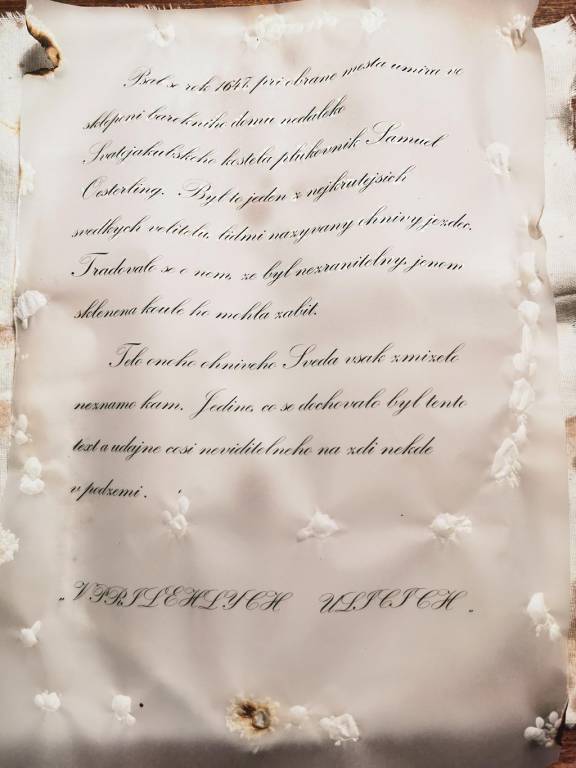 Byl se rok 1647, pri obrane mesta umira ve
sklepeni barokniho domu nedaleko
Svatojakubskeho kostela plukovnik Samuel
Oesterling. Byl to jeden z nejkrutejsich
svedkych velitelu, lidmi nazyvany ohnivy jezdec.
Tradovalo se o nem, ze byl nezranitelny, jenom
sklenena koule ho mohla zabit.
Telo onoho ohniveho Sveda vsak zmizelo
neznamo kam. Jedine, co se dochovalo byl tento
text a udajne cosi neviditelneho na zdi nekde
v podzemi.
„V PRILEHLYCH ULICICH„